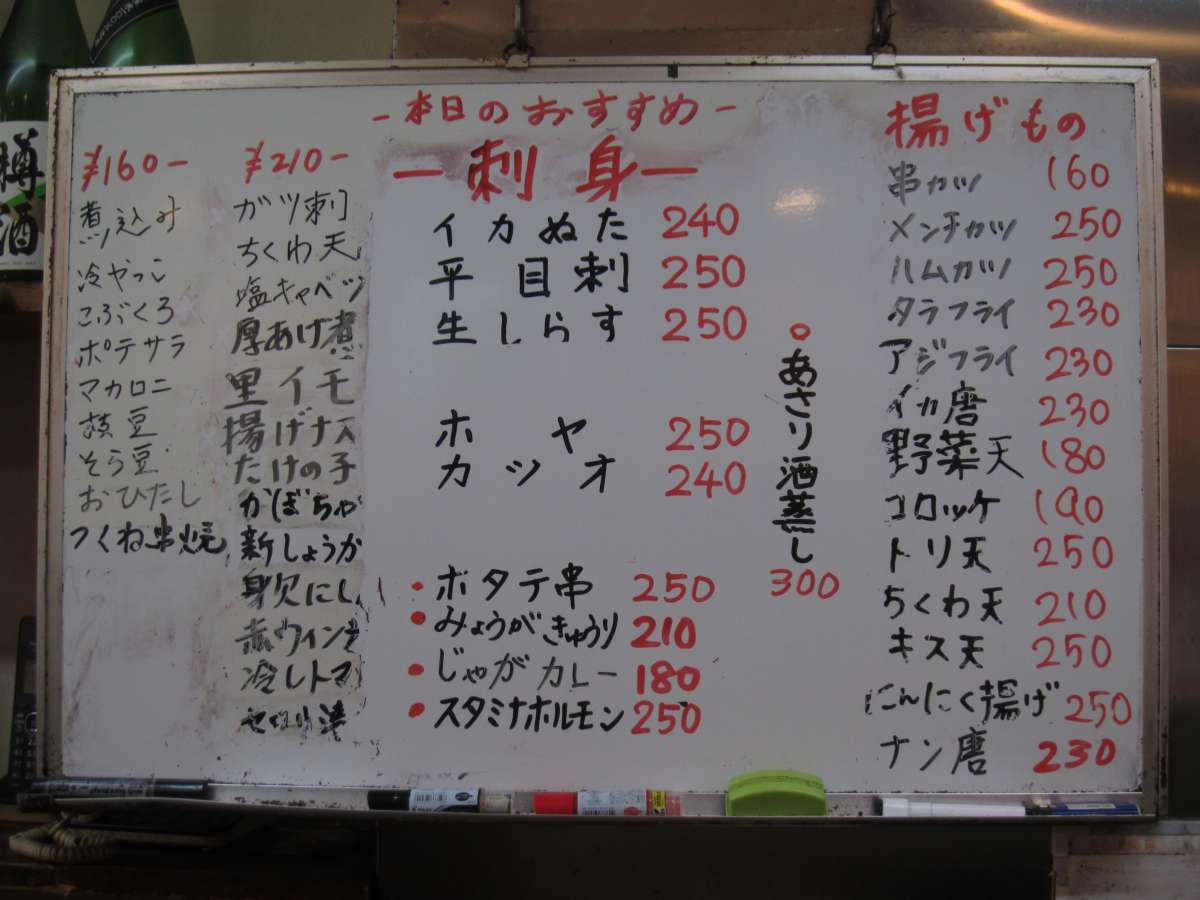 樽酒
¥160-
煮込み
冷やっこ
こぶくろ
ポテサラ
マカロニ
枝豆
そら豆
おひたし
つくね串焼
¥210-
ガツ刺
ちくわ天
塩キャベツ
厚あげ煮
里イモ
揚げナス
たけの子
かぼちゃ
新しょうが
身欠にしん
赤ウィンナ
冷しトマ
セロリ漬
-本日のおすすめ-
ー刺身ー
イカぬた 240
平目刺 250
生しらす 250
ホヤ 250
カツオ 240
・ホタテ串 250
・みょうがきゅうり 210
・じゃがカレー 180
・スタミナホルモン 250
○あさり酒蒸し
300
揚げもの
串カツ 160
メンチカツ 250
ハムカツ 250
タラフライ 230
アジフライ 230
イカ唐 230
野菜天 180
コロッケ 190
トリ天 250
ちくわ天 210
キス天 250
にんにく揚げ 250
ナン唐 230